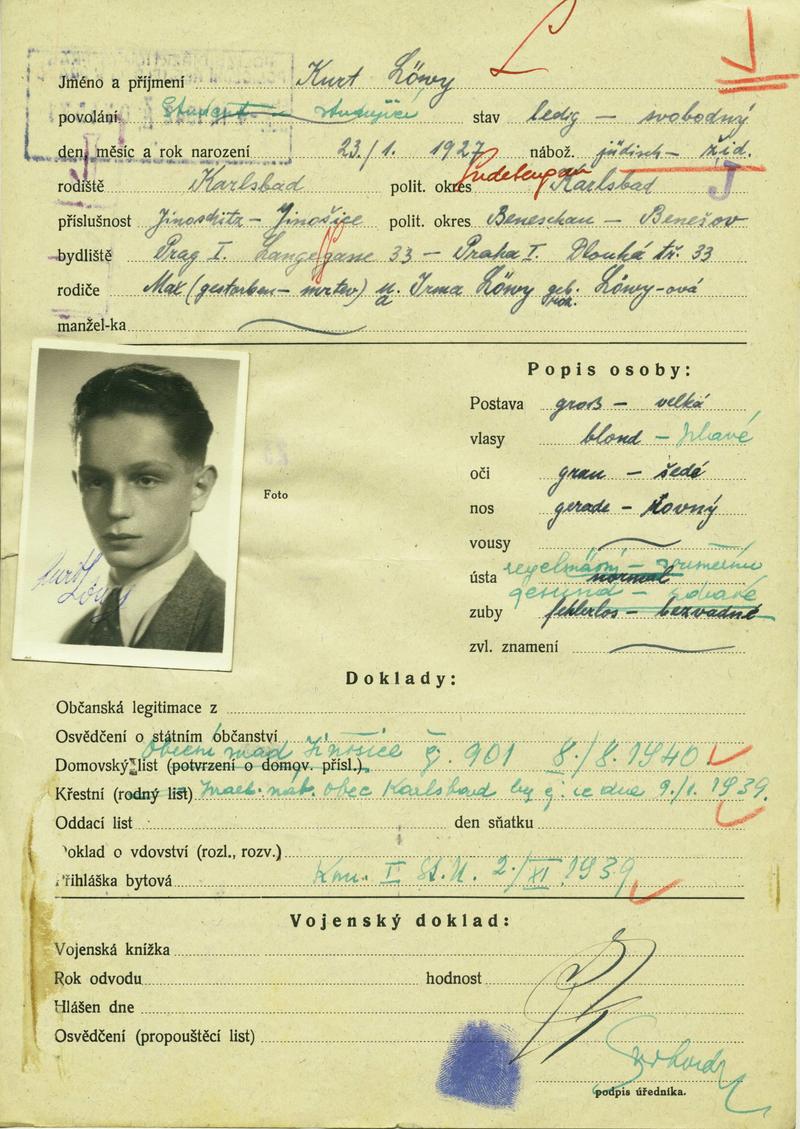 Jméno a příjmení Kurt Löwy
povolání Student – studující stav ledig – svobodný
den, měsíc a rok narození 23/1. 1927 nábož. jüdisch – žid.
Sudetengau
rodiště Karlsbad polit. okres Karlsbad J
příslušnost Jinoschitz – Jinošice polit. okres Beneschau – Benešov
bydliště Prag I. Langegasse 33 – Praha I. Dlouhá tř. 33
rodiče Max (gestorben – mrtev) u. a Irma Löwy geb. roz. Löwy-ová
manžel-ka
Popis osoby:
Postava groß – velká
vlasy blond – plavé
oči grau – šedé
nos gerade – rovný
Foto
vousy
regelmässig –
ústa normal
gesund – zdravé
zuby fehlerlos – bezvadné
zvl. znamení
Kurt Löwy
Doklady:
Občanská legitimace z
Osvědčení o státním občanství
Obecní úřad Jinošice č. 901 8./8. 1940.
Domovský list (potvrzení o domov. přísl.)
Křestní (rodný list) Israel. náb. obec Karlsbad dne 9./1. 1939.
Oddací list den sňatku
Doklad o vdovství (rozl., rozv.)
Přihláška bytová Kom. I 2./XI. 1939
Vojenský doklad:
Vojenská knížka
Rok odvodu hodnost
Hlášen dne
Osvědčení (propouštěcí list)
podpis úředníka.